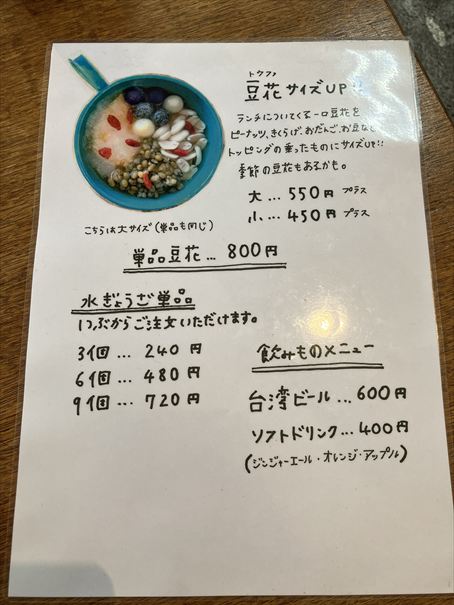 トウファ
豆花サイズUP!!
ランチについてくる一口豆花を
ピーナッツ、きくらげ、おだんご、お豆など
トッピングの乗ったものにサイズUP!!
季節の豆花もあるかも。
大 … 550円 プラス
小 … 450円 プラス
こちらは大サイズ(単品も同じ)
単品豆花 … 800円
水ぎょうざ単品
1つぶからご注文いただけます。
3個 … 240 円
6個 … 480 円
9個 … 720 円
飲みものメニュー
台湾ビール … 600円
ソフトドリンク … 400円
(ジンジャーエール・オレンジ・アップル)